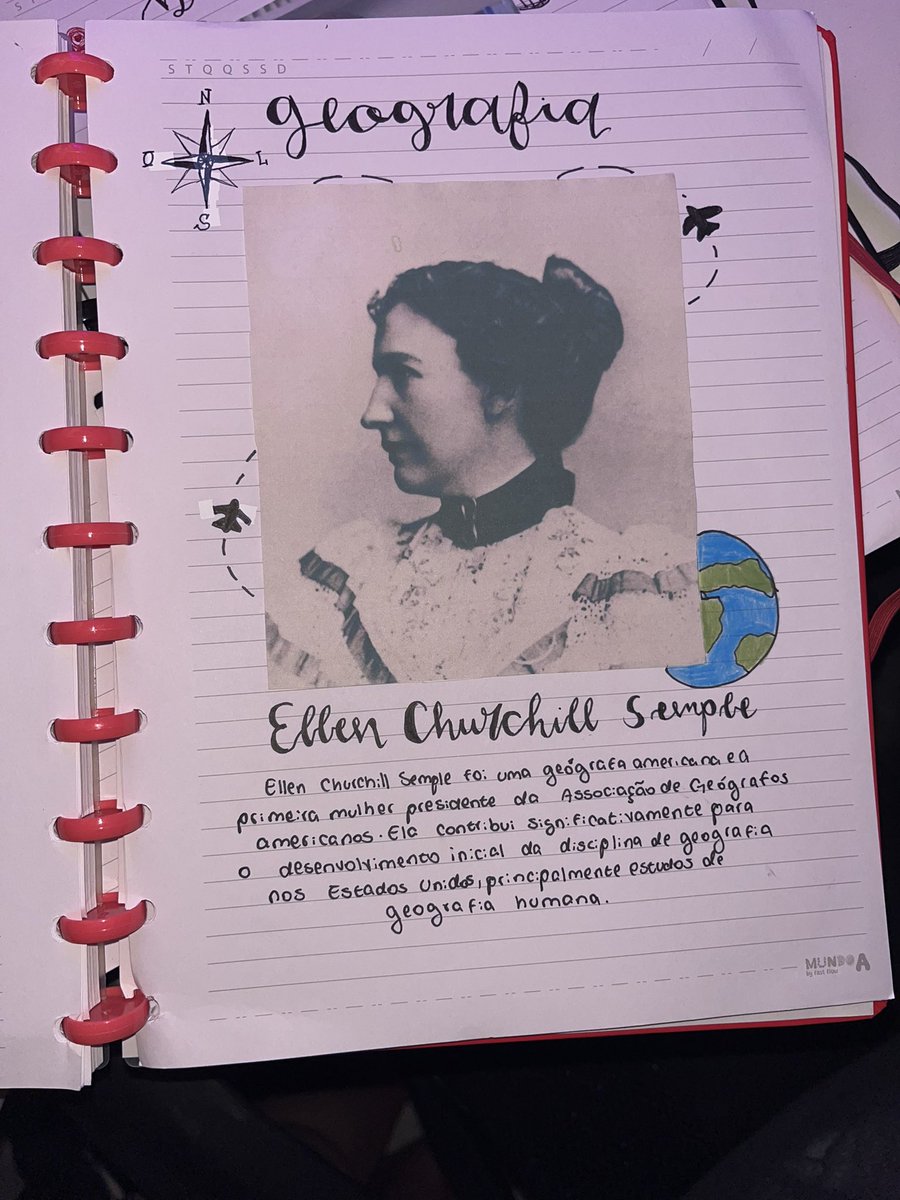 S T Q Q S S D
/ /
N
geografia
O L
S
Ellen Churchill Semple
Ellen Churchill Semple foi uma geógrafa americana e a
primeira mulher presidente da Associação de Geógrafos
americanos. Ela contribui significativamente para
o desenvolvimento inicial da disciplina de geografia
nos Estados Unidos, principalmente estudos de
geografia humana.
MUNDO A